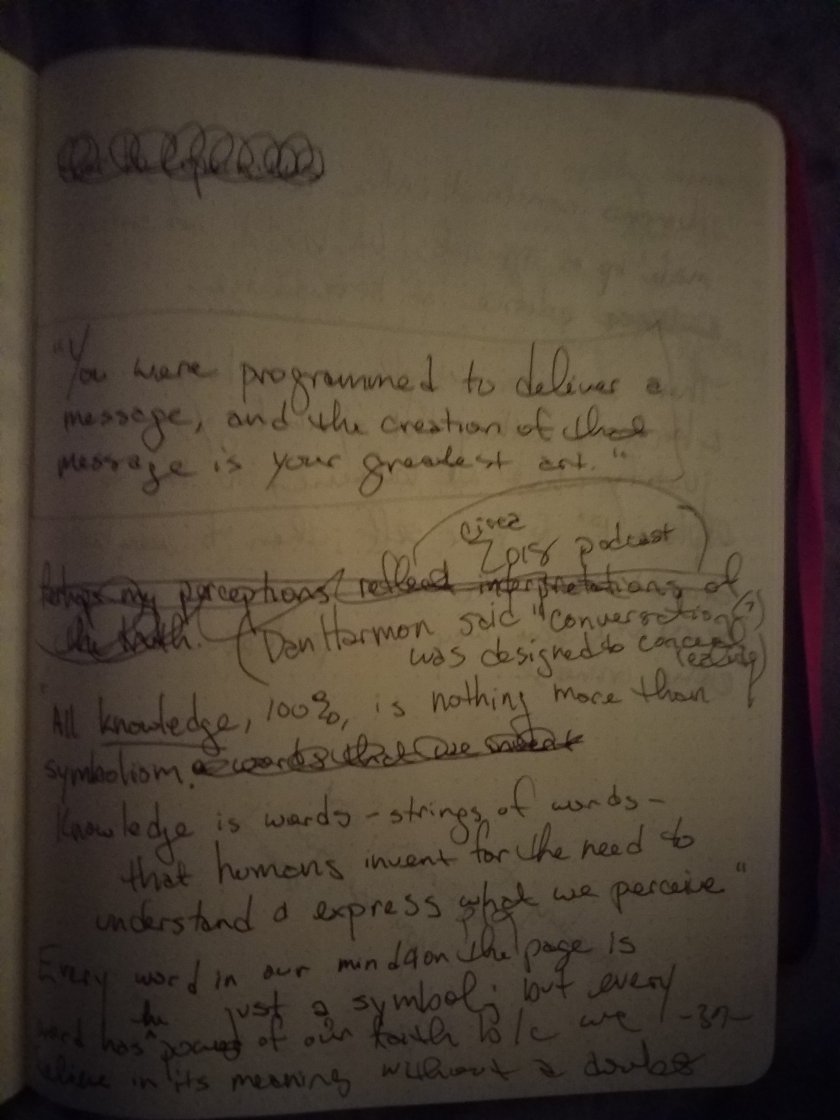 "You were programmed to deliver a
message, and the creation of that
message is your greatest art."
podcast
Perhaps my perceptions reflect interpretations of
the truth. (Dan Harmon said "conversation"
was designed to conceal
All knowledge, 100%, is nothing more than
symbolism. words that
Knowledge is words - strings of words -
that humans invent for the need to
understand & express what we perceive"
Every word in our mind & on the page is
just a symbol; but every
word has the power of our faith b/c we -37-
believe in its meaning without a doubt